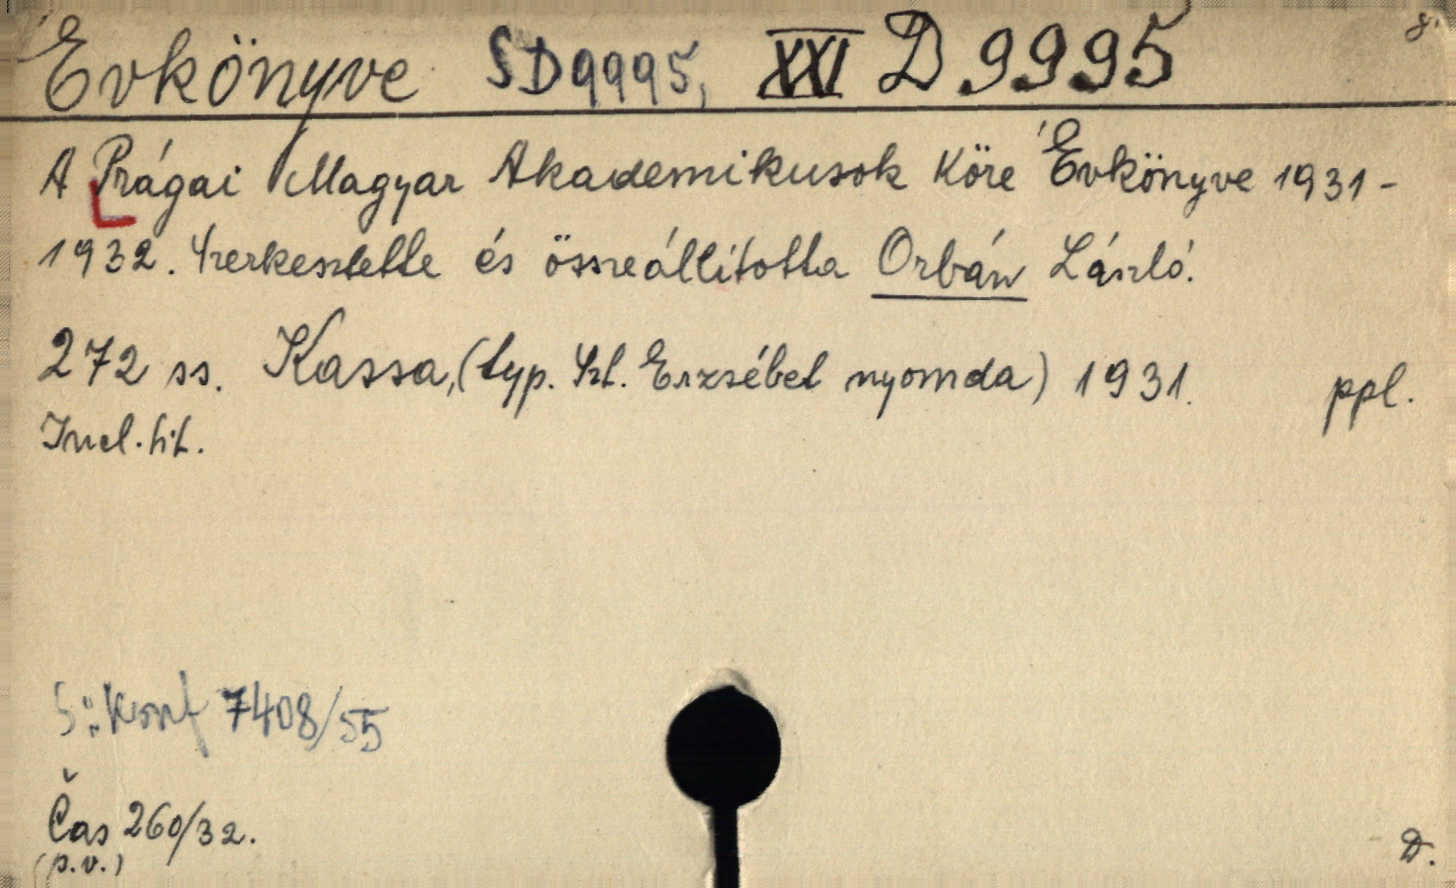 Évkönyve SD9995, XXI D 9995 8°
A Prágai Magyar Akademikusok Köre Évkönyve 1931-
1932. Szerkesztette és összeállította Orbán László.
272 ss. Kassa, (typ. Szt. Erzsébet nyomda) 1931. ppl.
Incl. tit.
S: Konf 7408/55
Čas 260/32.
(p.v.) D.